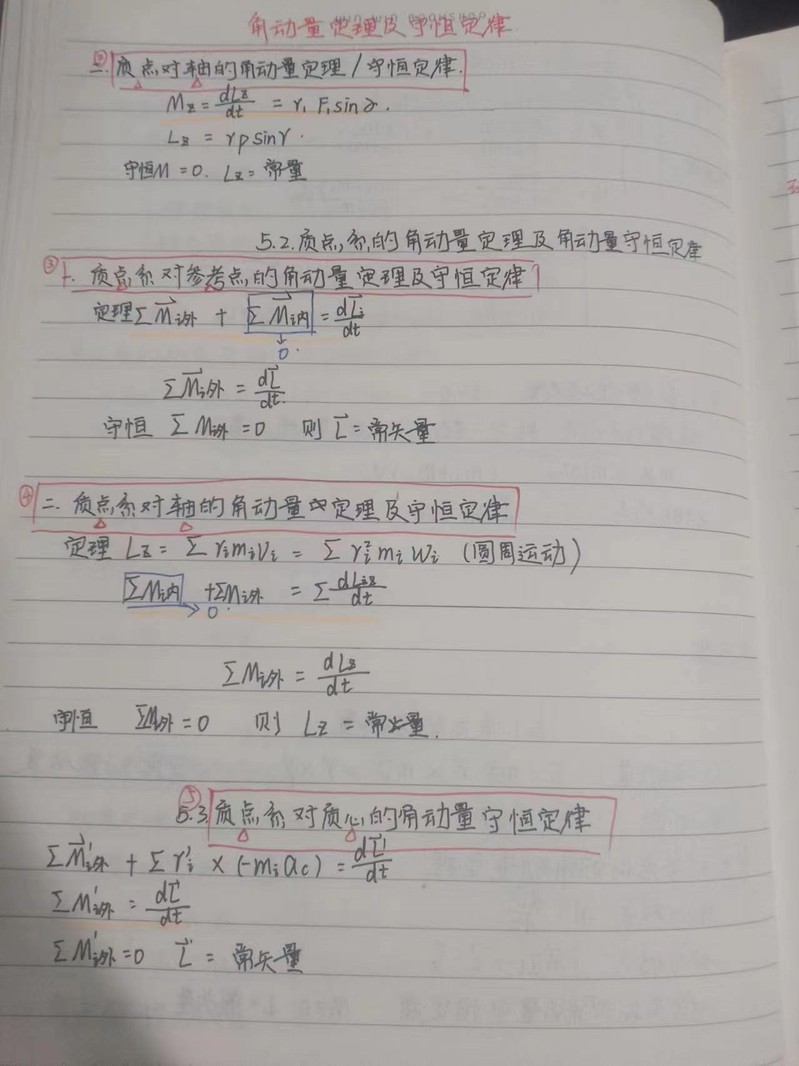 角动量定理及守恒定律
② 二.质点对轴的角动量定理/守恒定律.
M_z = dL_z/dt = r₁ F₁ sin α.
L_z = r p sin γ.
守恒 M = 0. L_z = 常量
5.2.质点系的角动量定理及角动量守恒定律
③ 1.质点系对参考点的角动量定理及守恒定律
定理 ΣM⃗i外 + ΣM⃗i内 = dL⃗i/dt
↓ 0.
ΣM⃗i外 = dL⃗/dt.
守恒 ΣMi外 = 0 则 L⃗ = 常矢量
④ 二.质点系对轴的角动量定理及守恒定律
定理 L_z = Σ r_i m_i v_i = Σ r_i² m_i w_i (圆周运动)
ΣMi内 + ΣMi外 = Σ dL_iz/dt
→ 0.
ΣMi外 = dL_z/dt
守恒 ΣM外 = 0 则 L_z = 常量.
⑤
5.3.质点系对质心的角动量守恒定律
ΣM⃗'i外 + Σ r'_i × (-m_i a_c) = dL⃗'/dt
ΣM'i外 = dL⃗'/dt
ΣM'i外 = 0 L⃗' = 常矢量